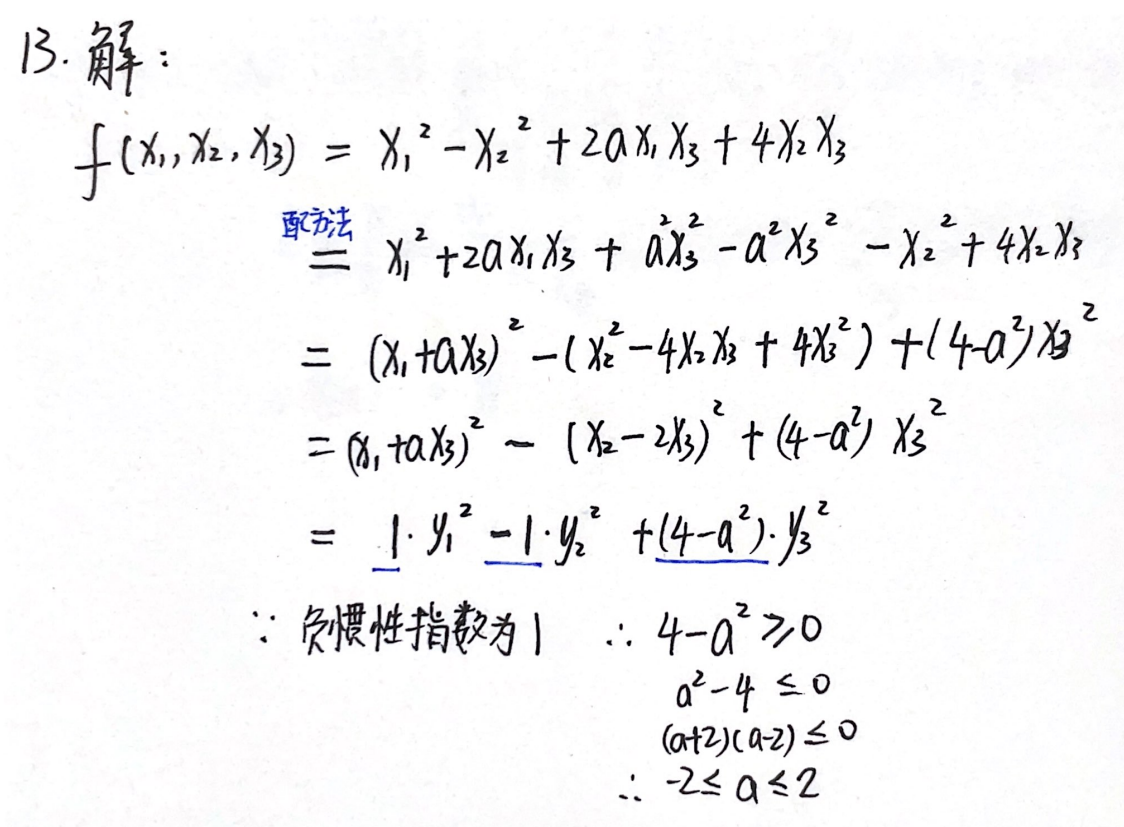 13. 解：
f(x₁, x₂, x₃) = x₁² - x₂² + 2ax₁x₃ + 4x₂x₃
配方法
= x₁² + 2ax₁x₃ + a²x₃² - a²x₃² - x₂² + 4x₂x₃
= (x₁+ax₃)² - (x₂² - 4x₂x₃ + 4x₃²) + (4-a²)x₃²
= (x₁+ax₃)² - (x₂-2x₃)² + (4-a²) x₃²
= 1·y₁² - 1·y₂² + (4-a²)·y₃²
∵ 负惯性指数为1 ∴ 4-a² ≥ 0
a²-4 ≤ 0
(a+2)(a-2) ≤ 0
∴ -2 ≤ a ≤ 2